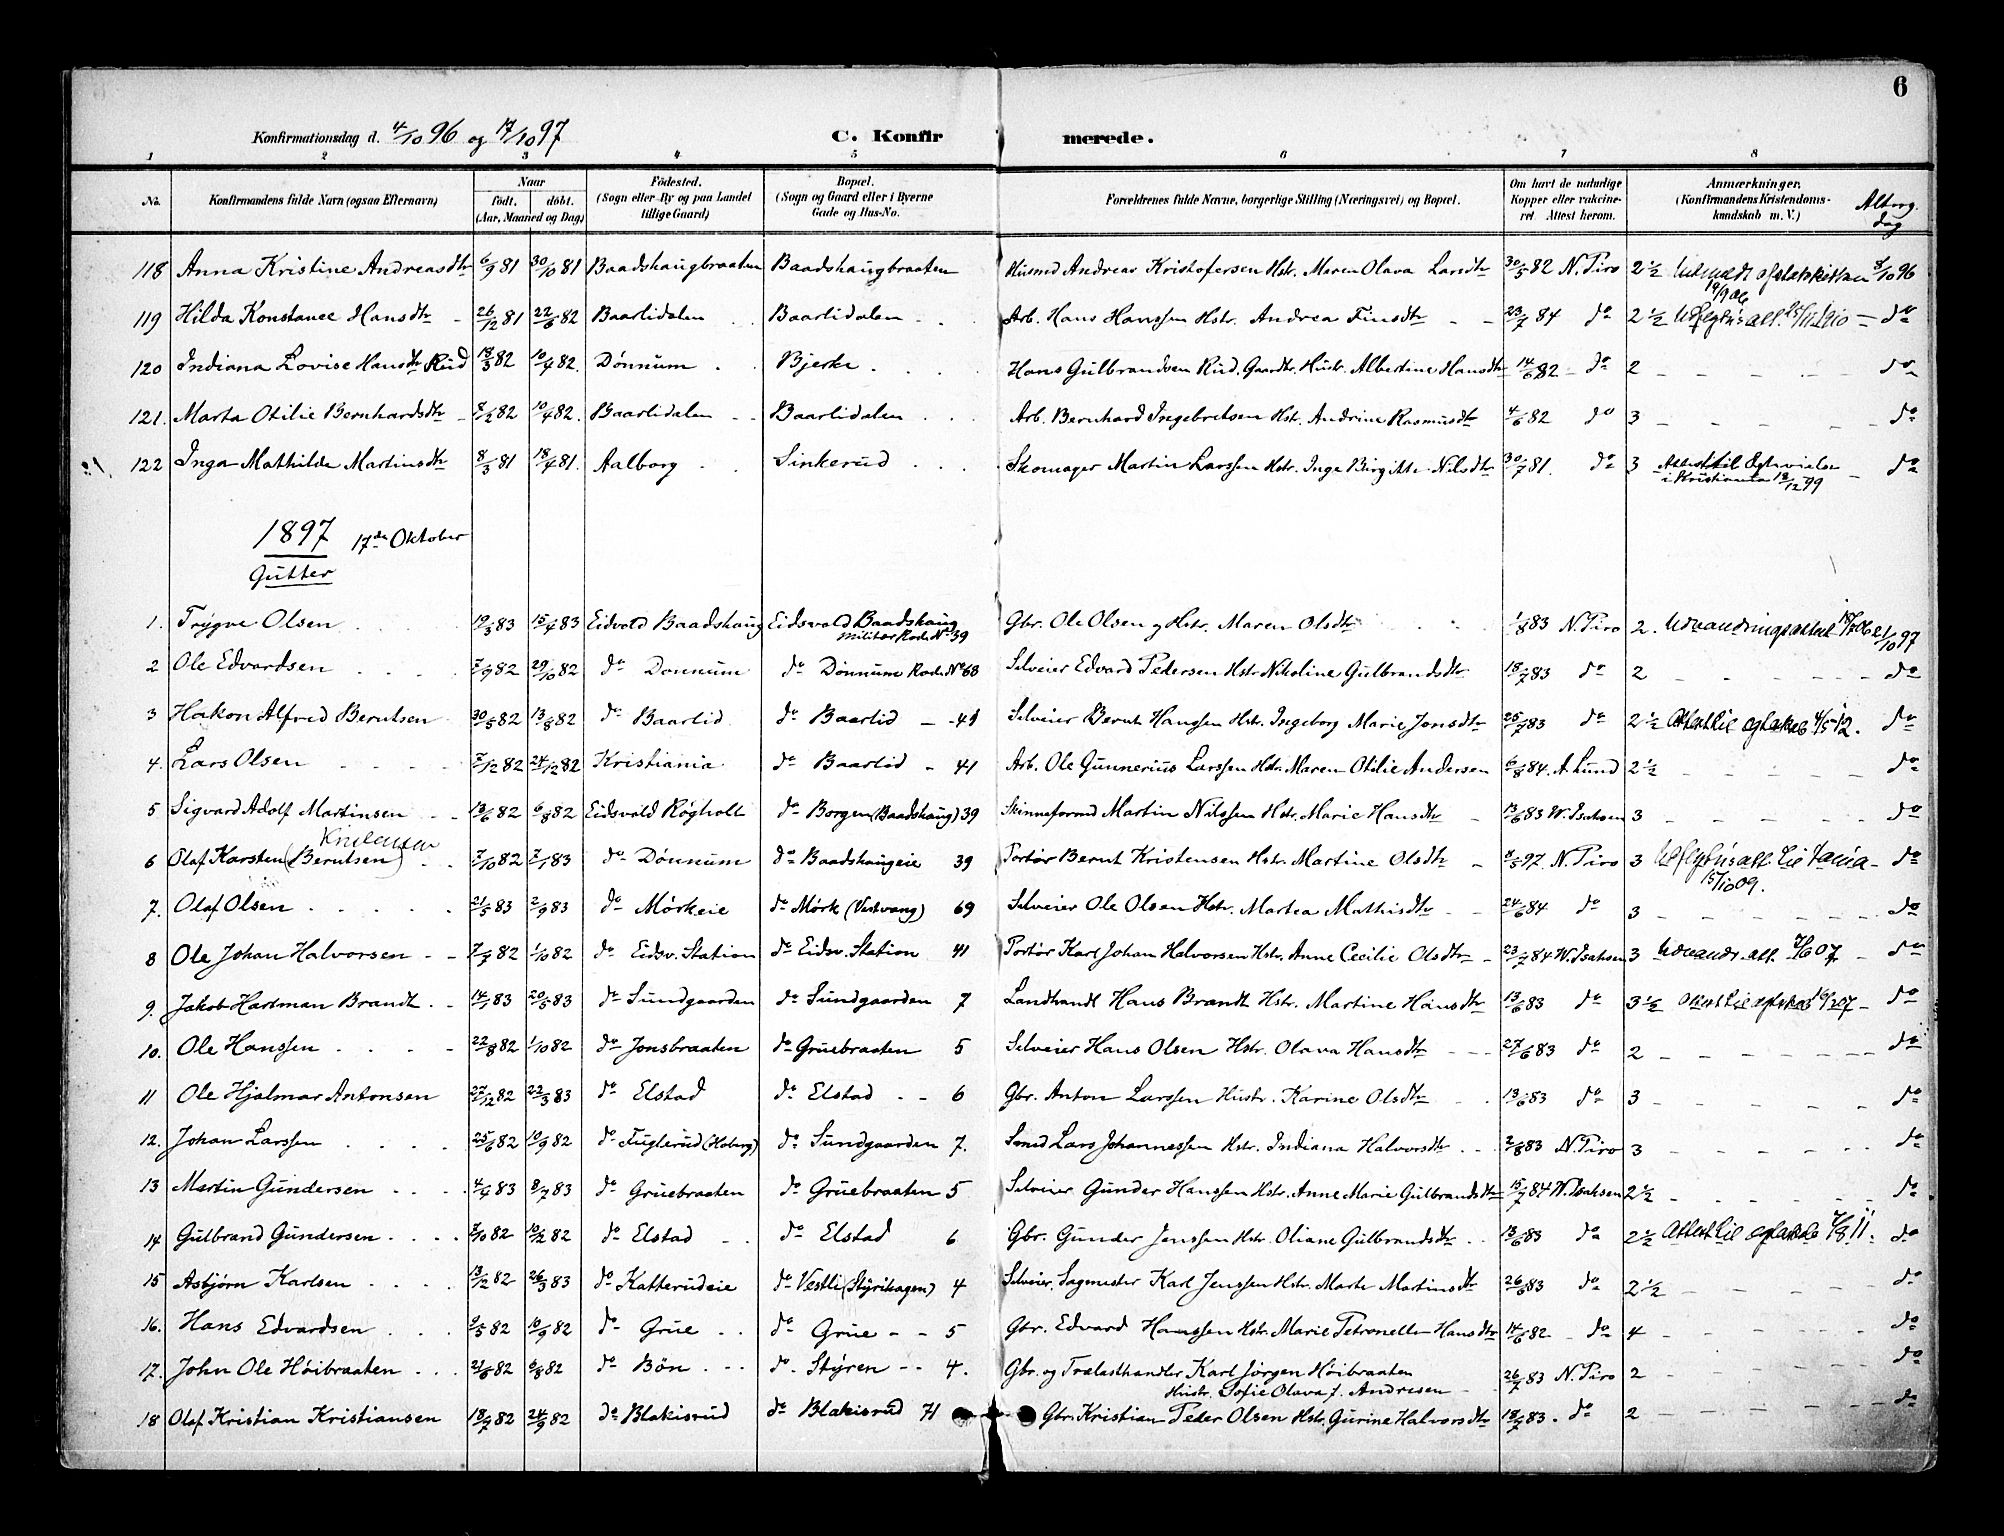 6
Konfirmationsdag d. 4/10 96 og 17/10 97 C. Konfirmerede.
1 2 3 4 5 6 7 8
No. Konfirmandens fulde Navn (ogsaa Efternavn) Naar født. døbt. (Aar, Maaned og Dag) Fødested. (Sogn eller By og paa Landet tillige Gaard) Bopæl. (Sogn og Gaard eller i Byerne Gade og Hus-No. Forældrenes fulde Navne, borgerlige Stilling (Næringsvei) og Bopæl. Om havt de naturlige Kopper eller vakcineret. Attest herom. Anmærkninger. (Konfirmandens Kristendomskundskab m. V.) dag
118 Anna Kristine Andreasdtr 6/9 81 30/10 81 Baadshaugbraaten Baadshaugbraaten Husmd Andreas Kristofersen Hstr. Maren Olava Larsdtr 30/5 82 N. Tiro 2½ 4/10 96
119 Hilda Konstance Hansdtr 26/12 81 22/6 82 Baarlidalen Baarlidalen Arb. Hans Hanssen Hstr. Andrea Finsdtr 23/7 84 do 2½ 19/9 06 do
120 Indiana Lovise Hansdtr Rud 18/3 82 10/4 82. Dønnum Bjerke Hans Gulbrandsen Rud. Gaardbr. Hustr. Albertine Hansdtr 14/6 82 do 2 do
121. Marta Otilie Bernhardsdtr 8/2 82 10/4 82. Baarlidalen Baarlidalen Arb. Bernhard Ingebretsen Hstr. Andrine Rasmusdtr 4/6 82 do 3 do
122 Inga Mathilde Martinsdtr 8/3 81 18/4 81. Aalborg Sinkerud Skomager Martin Larssen Hstr. Inge Birgitte Nilsdtr 30/7 81. do 3 Attest til i Kristiania 12/12 99 do
1897 17de Oktober
Gutter
1. Trygve Olsen 19/3 83 15/4 83 Eidvold Baadshaug Eidsvold Baadshaug militær Rode No 39 Gbr. Ole Olsen og Hstr. Maren Olsdtr 1/8 83 N. Tiro 2. Udvandringsattest 21/10 97
2 Ole Edvardsen 7/9 82 29/10 82 do Donnum do Dönnum Rode No 68 Selveier Edvard Pedersen Hstr. Nikoline Gulbrandsdtr 18/7 83 do 2 do
3 Hakon Alfred Berntsen 30/5 82 13/8 82 do Baarlid do Baarlid 41 Selveier Bernt Hanssen Hstr. Ingeborg Marie Jonsdtr 25/7 83 do 2½ Attest til 4/5 12. do
4. Lars Olsen 7/12 82 24/12 82 Kristiania do Baarlid 41 Arb. Ole Gunnerius Larssen Hstr. Maren Otilie Andersen 6/8 84. A. Lund 2½ do
5 Sigvard Adolf Martinsen 13/6 82 6/8 82 Eidsvold Røgholt do Borgen (Baadshaug) 39 Skinneformd Martin Nilssen Hstr. Marie Hansdtr 13/6 83 W. Isaksen 3 do
6 Olaf Karsten (Berntsen) 7/10 82 7/1 83 do Dönnum do Baadshaugeie 39 Portør Bernt Kristensen Hstr. Martine Olsdtr 97. N. Tiro 3 15/10 09. do
7. Olaf Olsen 21/5 83 2/9 83 do Mørkeie do Mørk (Vestvang) 69 Selveier Ole Olsen Hstr. Martea Mathisdtr 24/6 84 do 3 do
8 Ole Johan Halvorsen 7/7 82 1/10 82 do Eidsv. Station do Eidsv. Station 41 Portør Karl Johan Halvorsen Hstr. Anne Cecilie Olsdtr 23/7 84 W. Isaksen 3 Udvandr. att. 7/6 07 do
9. Jakob Hartman Brandt 14/1 83 20/5 83 do Sundgaarden do Sundgaarden 7 Landhandl Hans Brandt Hstr. Martine Hansdtr 13/6 83 do 3½ do
10. Ole Hanssen 22/8 82 1/10 82 do Jonsbraaten do Gruebraaten 5 Selveier Hans Olsen Hstr. Olava Hansdtr 27/6 83 do 2 do
11 Ole Hjalmar Antonsen 27/12 82 22/3 83 do Elstad do Elstad 6 Gbr. Anton Larssen Hustr. Karine Olsdtr 13/6 83 do 3 do
12. Johan Larssen 25/6 82 10/9 82 do Fuglerud (Hoberg) do Sundgaarden 7. Smed Lars Johannessen Hstr. Indiana Halvorsdtr 2/8 83 N. Tiro 3 do
13 Martin Gundersen 4/4 83 8/7 83 do Gruebraaten do Gruebraaten 5 Selveier Gunder Hanssen Hstr. Anne Marie Gulbrandsdtr 15/7 84 W. Isaksen 2½ do
14 Gulbrand Gundersen 7/10 82 10/12 82 do Elstad do Elstad 6 Gbr. Gunder Jenssen Hstr. Oliane Gulbrandsdtr 13/6 83 do 2½ Attest til do
15 Asbjørn Karlsen 13/12 82 26/3 83 do Katterudeie do Vestli (Styrihagen) 4 Selveier. Sagmester Karl Jenssen Hstr. Marte Martinsdtr 26/6 83 do 2½ do
16. Hans Edvardsen 9/5 82 10/9 82 do Grue do Grue 5 Gbr. Edvard Hanssen Hstr. Marie Petronelle Hansdtr 14/6 82 do 4 do
17. John Ole Høibraaten 21/6 82 6/8 82 do Bön do Styren 4. Gbr. og Trælasthandler Karl Jørgen Høibraaten Hustr. Sofie Olava f. Andresen 26/7 83 N. Tiro 2 do
18 Olaf Kristian Kristiansen 18/7 82 24/9 82 do Blakisrud do Blakisrud 71 Gbr. Kristian Peder Olsen Hstr. Gurine Halvorsdtr 18/7 83. do 2 do